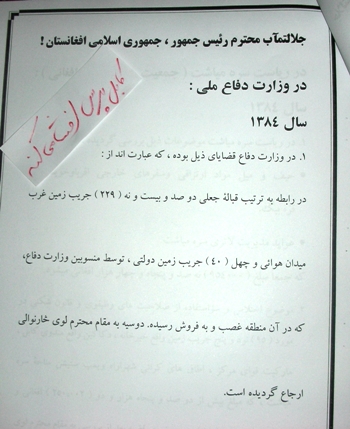 جلالتمآب محترم رئیس جمهور ، جمهوری اسلامی افغانستان !
در وزارت دفاع ملی :
سال ۱۳۸۴
کابل پرس افشا می کند
۱. در وزارت دفاع قضایای ذیل بوده ، که عبارت اند از :
در رابطه به ترتیب قبالهٔ جعلی دو صد و بیست و نه ( ۲۲۹ ) جریب زمین غرب
میدان هوائی و چهل ( ۴۰ ) جریب زمین دولتی ، توسط منسوبین وزارت دفاع،
که در آن منطقه غصب و به فروش رسیده. دوسیه به مقام محترم لوی خارنوالی
ارجاع گردیده است.